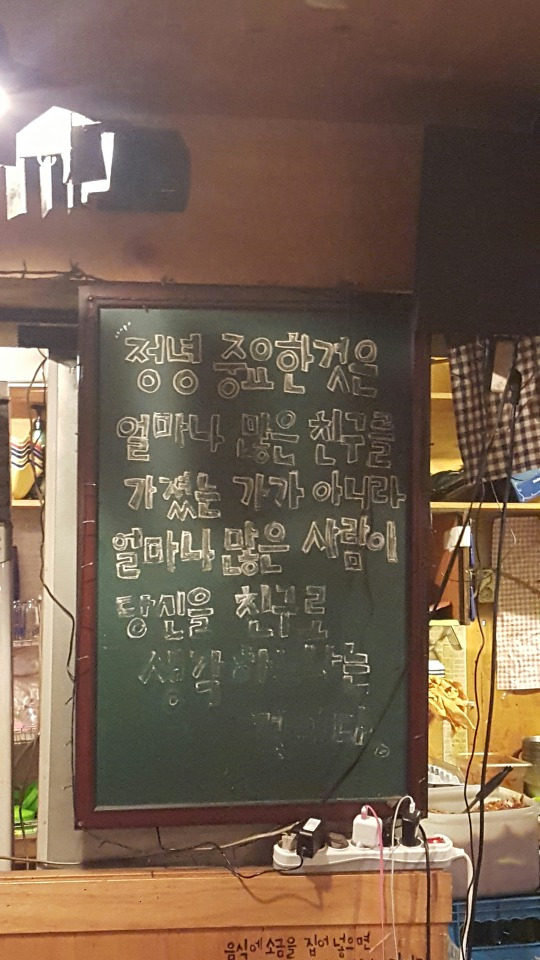 정녕 중요한것은
얼마나 많은 친구를
가졌는 가가 아니라
얼마나 많은 사람이
당신을 친구로
생각
음식에 소금을 집어 넣으면